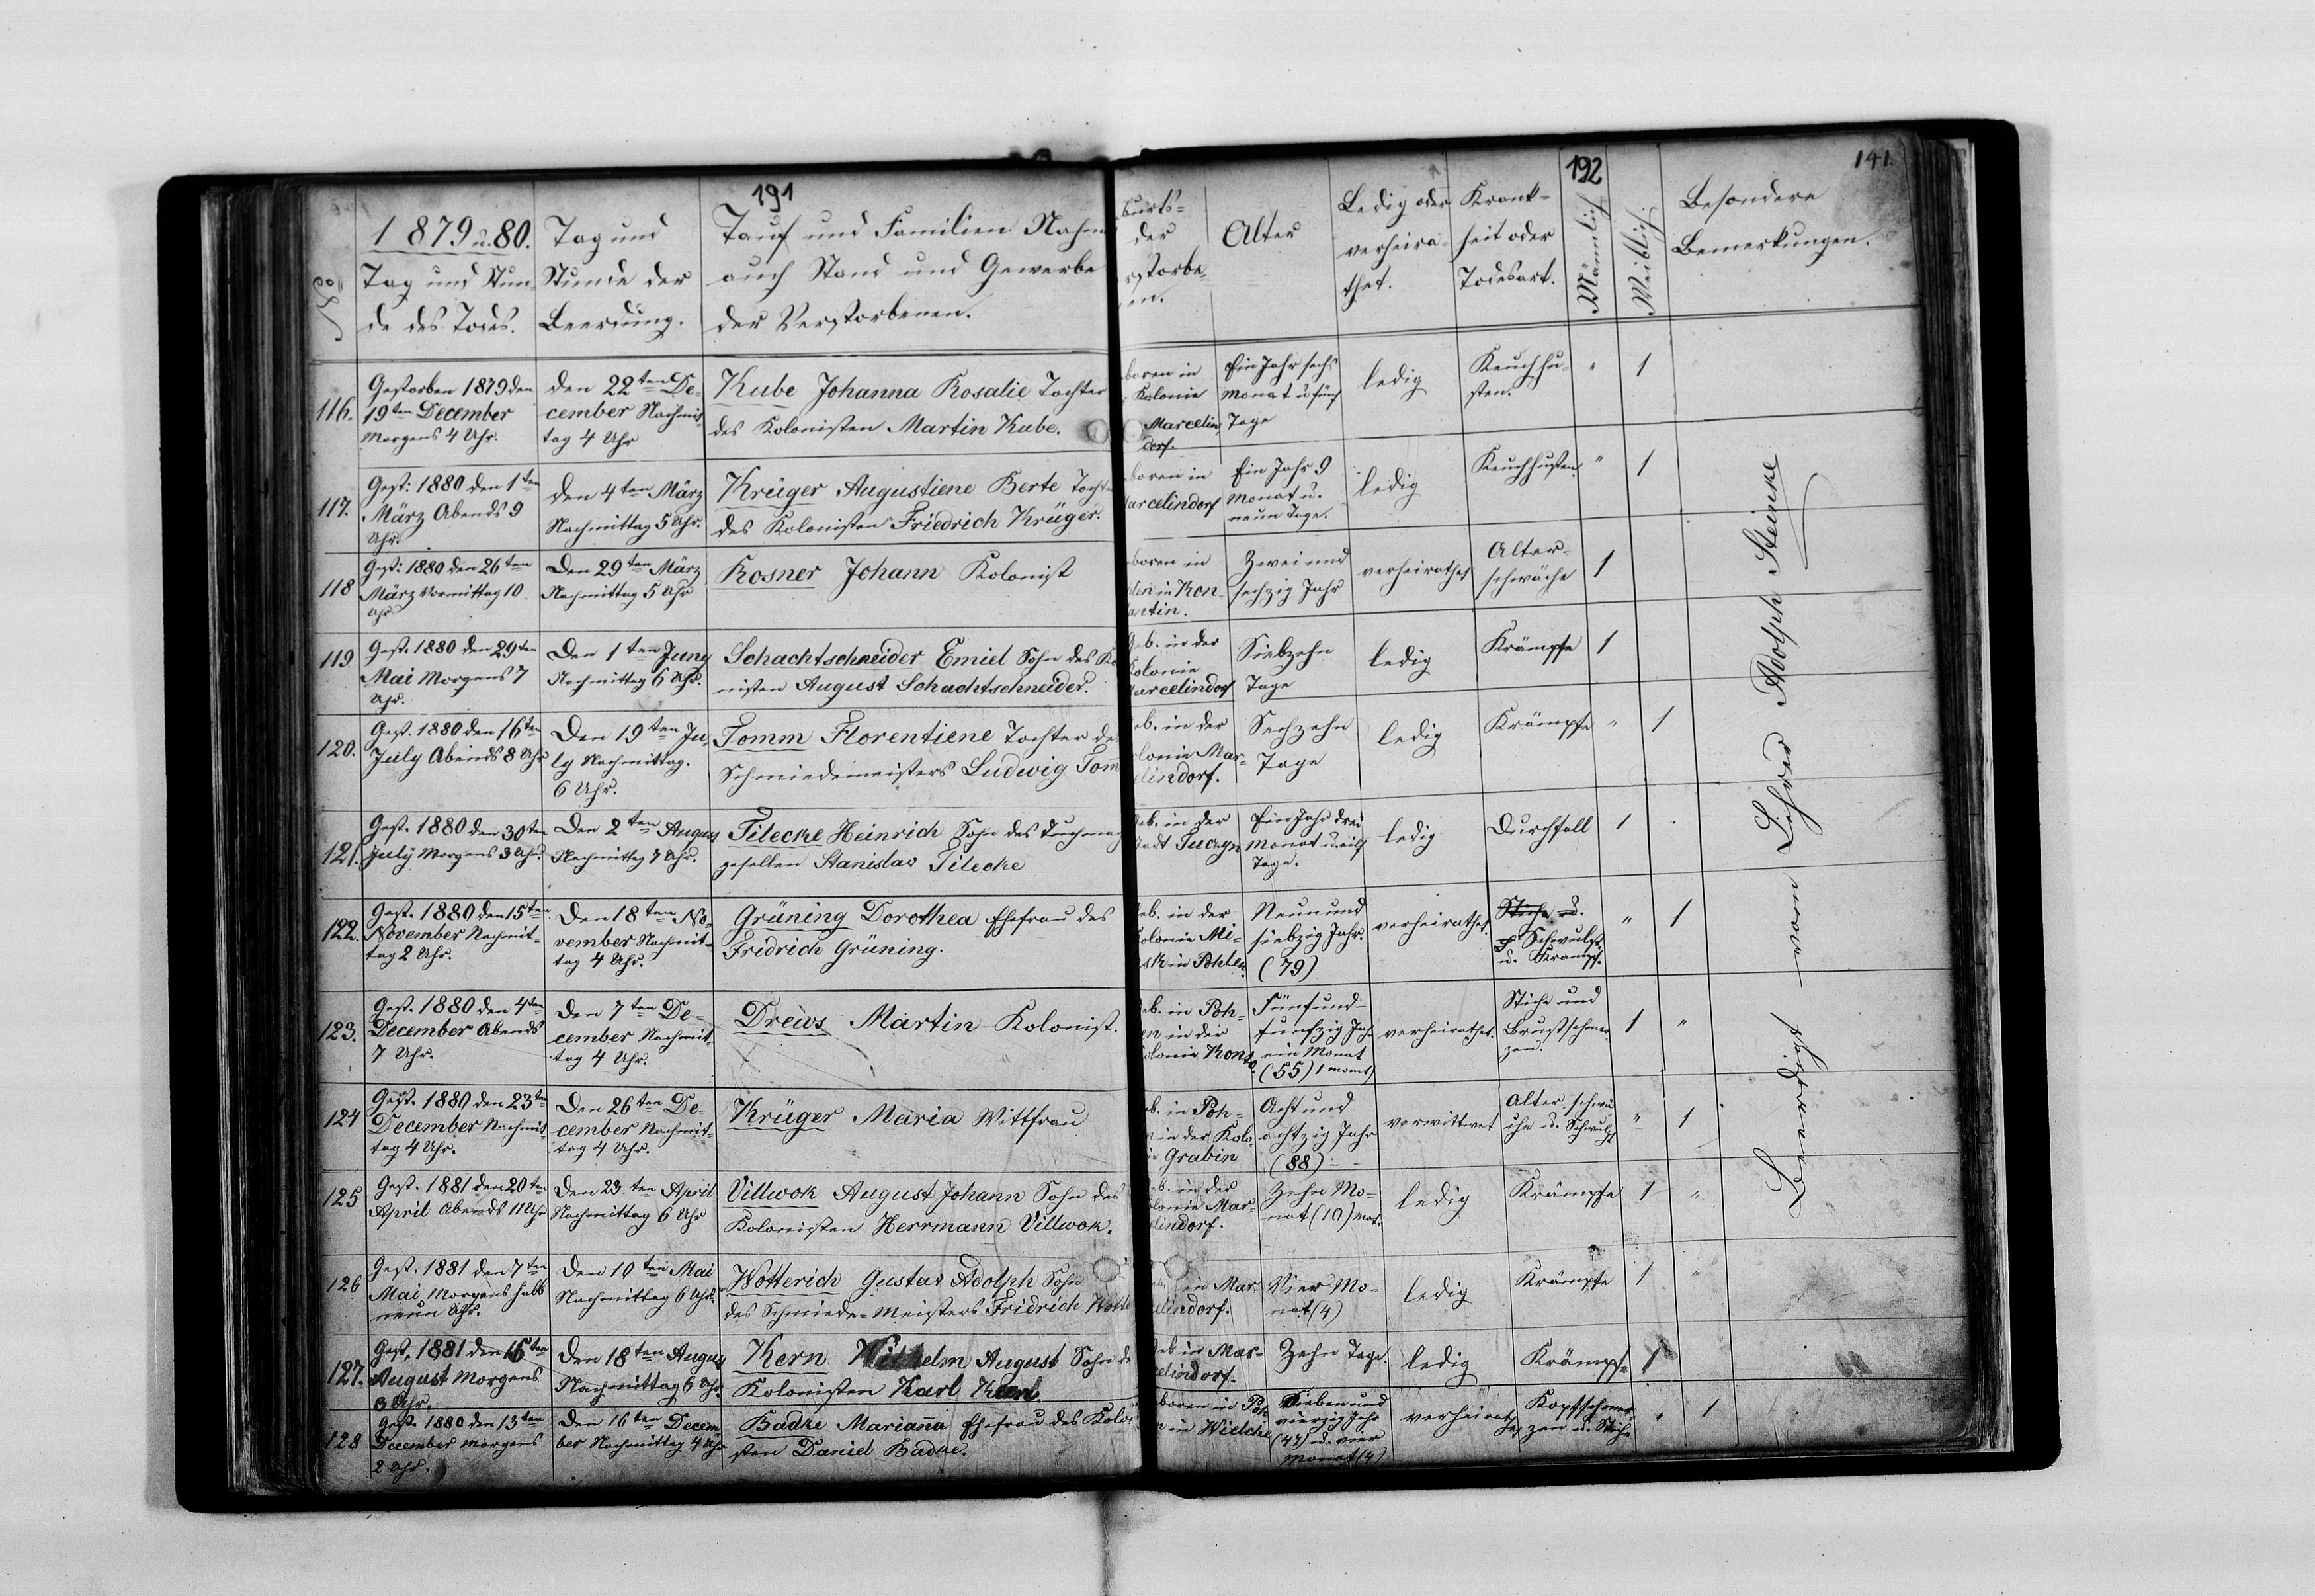 191
192
141.
1879 u. 80.
Tag und Stun-
de des Todes.
Tag und
Stunde der
Beerdung.
Tauf und Familien Nahm
auch Stand und Gewerbe
der Verstorbenen.
burts-
der
rstorbe-
en.
Alter
Ledig oder
verheira-
thet.
Krank-
heit oder
Todesart.
Männlich
Weiblich.
Besondere
Bemerkungen.
116.
Gestorben 1879 den
19ten December
Morgens 4 Uhr.
den 22ten De-
cember Nachmit-
tag 4 Uhr
Kube Johanna Rosalie Tochter
des Kolonisten Martin Kube.
boren in
Kolonie
Marcelin-
dorf.
Ein Jahr sechs
Monat u. fünf
Tage
ledig
Keuchhu-
sten.
" 1
117.
Gest: 1880 den 1ten
März Abends 9
Uhr.
den 4ten März
Nachmittag 5 Uhr.
Krüger Augustiene Berte Tochte
des Kolonisten Friedrich Krüger.
boren in
arcelindorf
Ein Jahr 9
Monat u.
neun Tage.
ledig
Keuchhusten
" 1
118
Gest: 1880 den 26ten
März Vormittag 10
Uhr
Den 29ten März
Nachmittag 5 Uhr
Rosner Johann Kolonist
boren in
len in Kon-
antin.
Zwei und
sechzig Jahr
verheirathet
Alter-
schwäche
1
119
Gest. 1880 den 29ten
Mai Morgens 7
Uhr.
Den 1ten Juny
Nachmittag 6 Uhr.
Schachtschneider Emiel Sohn des Ko
nisten August Schachtschneider.
Geb. in der
Kolonie
Marcelindorf
Siebzehn
Tage
ledig
Krämpfe
1
120.
Gest. 1880 den 16ten
July Abends 8 Uhr
Den 19ten Ju-
ly Nachmittag.
6 Uhr.
Tomm Florentiene Tochter des
Schmiedemeisters Ludwig Tom
eb. in der
olonie Mar-
elindorf.
Sechzehn
Tage
ledig
Krämpfe
" 1
121.
Gest. 1880 den 30ten
July Morgens 3 Uhr.
Den 2ten Augus
Nachmittag 7 Uhr.
Tilecke Heinrich Sohn des Tuchmach
gesellen Stanislav Tilecke
eb. in der
tadt Tuczyn
Ein Jahr drei
Monat u. eilf
Tage.
ledig
Durchfall
1
122.
Gest. 1880 den 15ten
November Nachmit-
tag 2 Uhr.
Den 18ten No-
vember Nachmit-
tag 4 Uhr.
Grüning Dorothea Ehefrau des
Fridrich Grüning.
eb. in der
olonie Mi-
sk in Pohlen.
Neun und
siebzig Jahr.
(79)
verheirathet.
Stiche u.
Schwulst.
u. Krampf.
" 1
123.
Gest. 1880 den 4ten
December Abends
7 Uhr.
Den 7ten De-
cember Nachmit-
tag 4 Uhr.
Drews Martin Kolonist.
eb. in Poh-
en in der
olonie Konst.
Fünfund-
funfzig Jah.
ein Monat
(55) 1 monat)
verheirathet.
Stiche und
Brustschmer-
zen.
1 "
124
Gest. 1880 den 23ten
December Nachmit-
tag 4 Uhr.
Den 26ten De-
cember Nachmit-
tag 4 Uhr.
Krüger Maria Wittfrau
eb. in Poh-
n in der Kolo-
ie Grabin
Acht und
achtzig Jahr
(88)
verwittwet
Alter-schwä
che u. Schwulst
" 1
125
Gest. 1881 den 20ten
April Abends 11 Uhr
Den 23ten April
Nachmittag 6 Uhr
Villwok August Johann Sohn des
Kolonisten Herrmann Villwok.
eb. in der
olonie Mar-
elindorf.
Zehn Mo-
nat (10) mot.
ledig
Krämpfe
1 "
126
Gest. 1881 den 7ten
Mai Morgens halb
neun Uhr.
Den 10ten Mai
Nachmittag 6 Uhr.
Wotterich Gustav Adolph Sohn
des Schmiede-Meisters Fridrich Wotte
eb. in Mar-
elindorf.
Vier Mo-
nat (4)
ledig
Krämpfe
1 "
127.
Gest. 1881 den 15ten
August Morgens
3 Uhr.
Den 18ten Augus
Nachmittag 6 Uhr.
Kern Wilhelm August Sohn de
Kolonisten Karl Kern.
Geb in Mar-
celindorf.
Zehn Tage.
ledig
Krämpfe
1
128
Gest. 1880 den 13ten
December morgens
2 Uhr.
Den 16ten Decem
ber Nachmittag 4 Uhr
Badke Marianna Ehefrau des Kolo
sten Daniel Badke.
boren in Poh
n in Wielche
Sieben und
vierzig Jahr
(47) u. vier
Monat (4)
verheirat
het
Kopfschmer-
zen u. Stiche
" 1
Beerdigt vom Lehrer Adolph Steinke